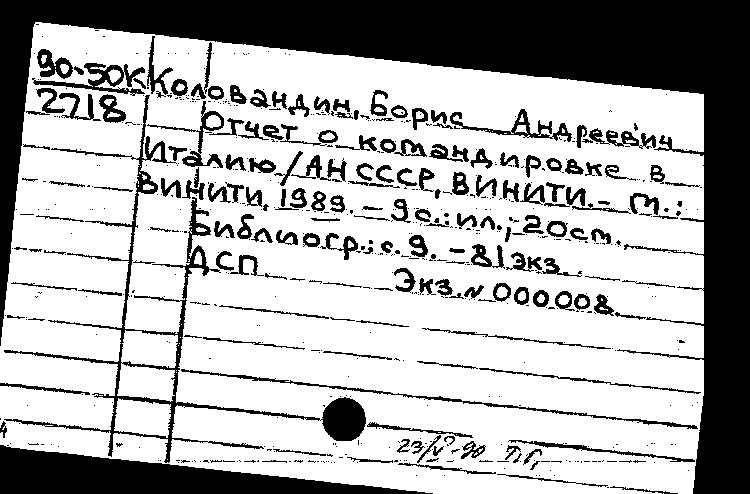 90-50К
2718
Коловандин, Борис Андреевич
Отчет о командировке в
Италию / АН СССР, ВИНИТИ. - М.:
ВИНИТИ, 1989. - 9 с.: ил.; 20 см.
Библиогр.: с. 9. - 81 экз.
ДСП. Экз. № 000008.
23/V-90